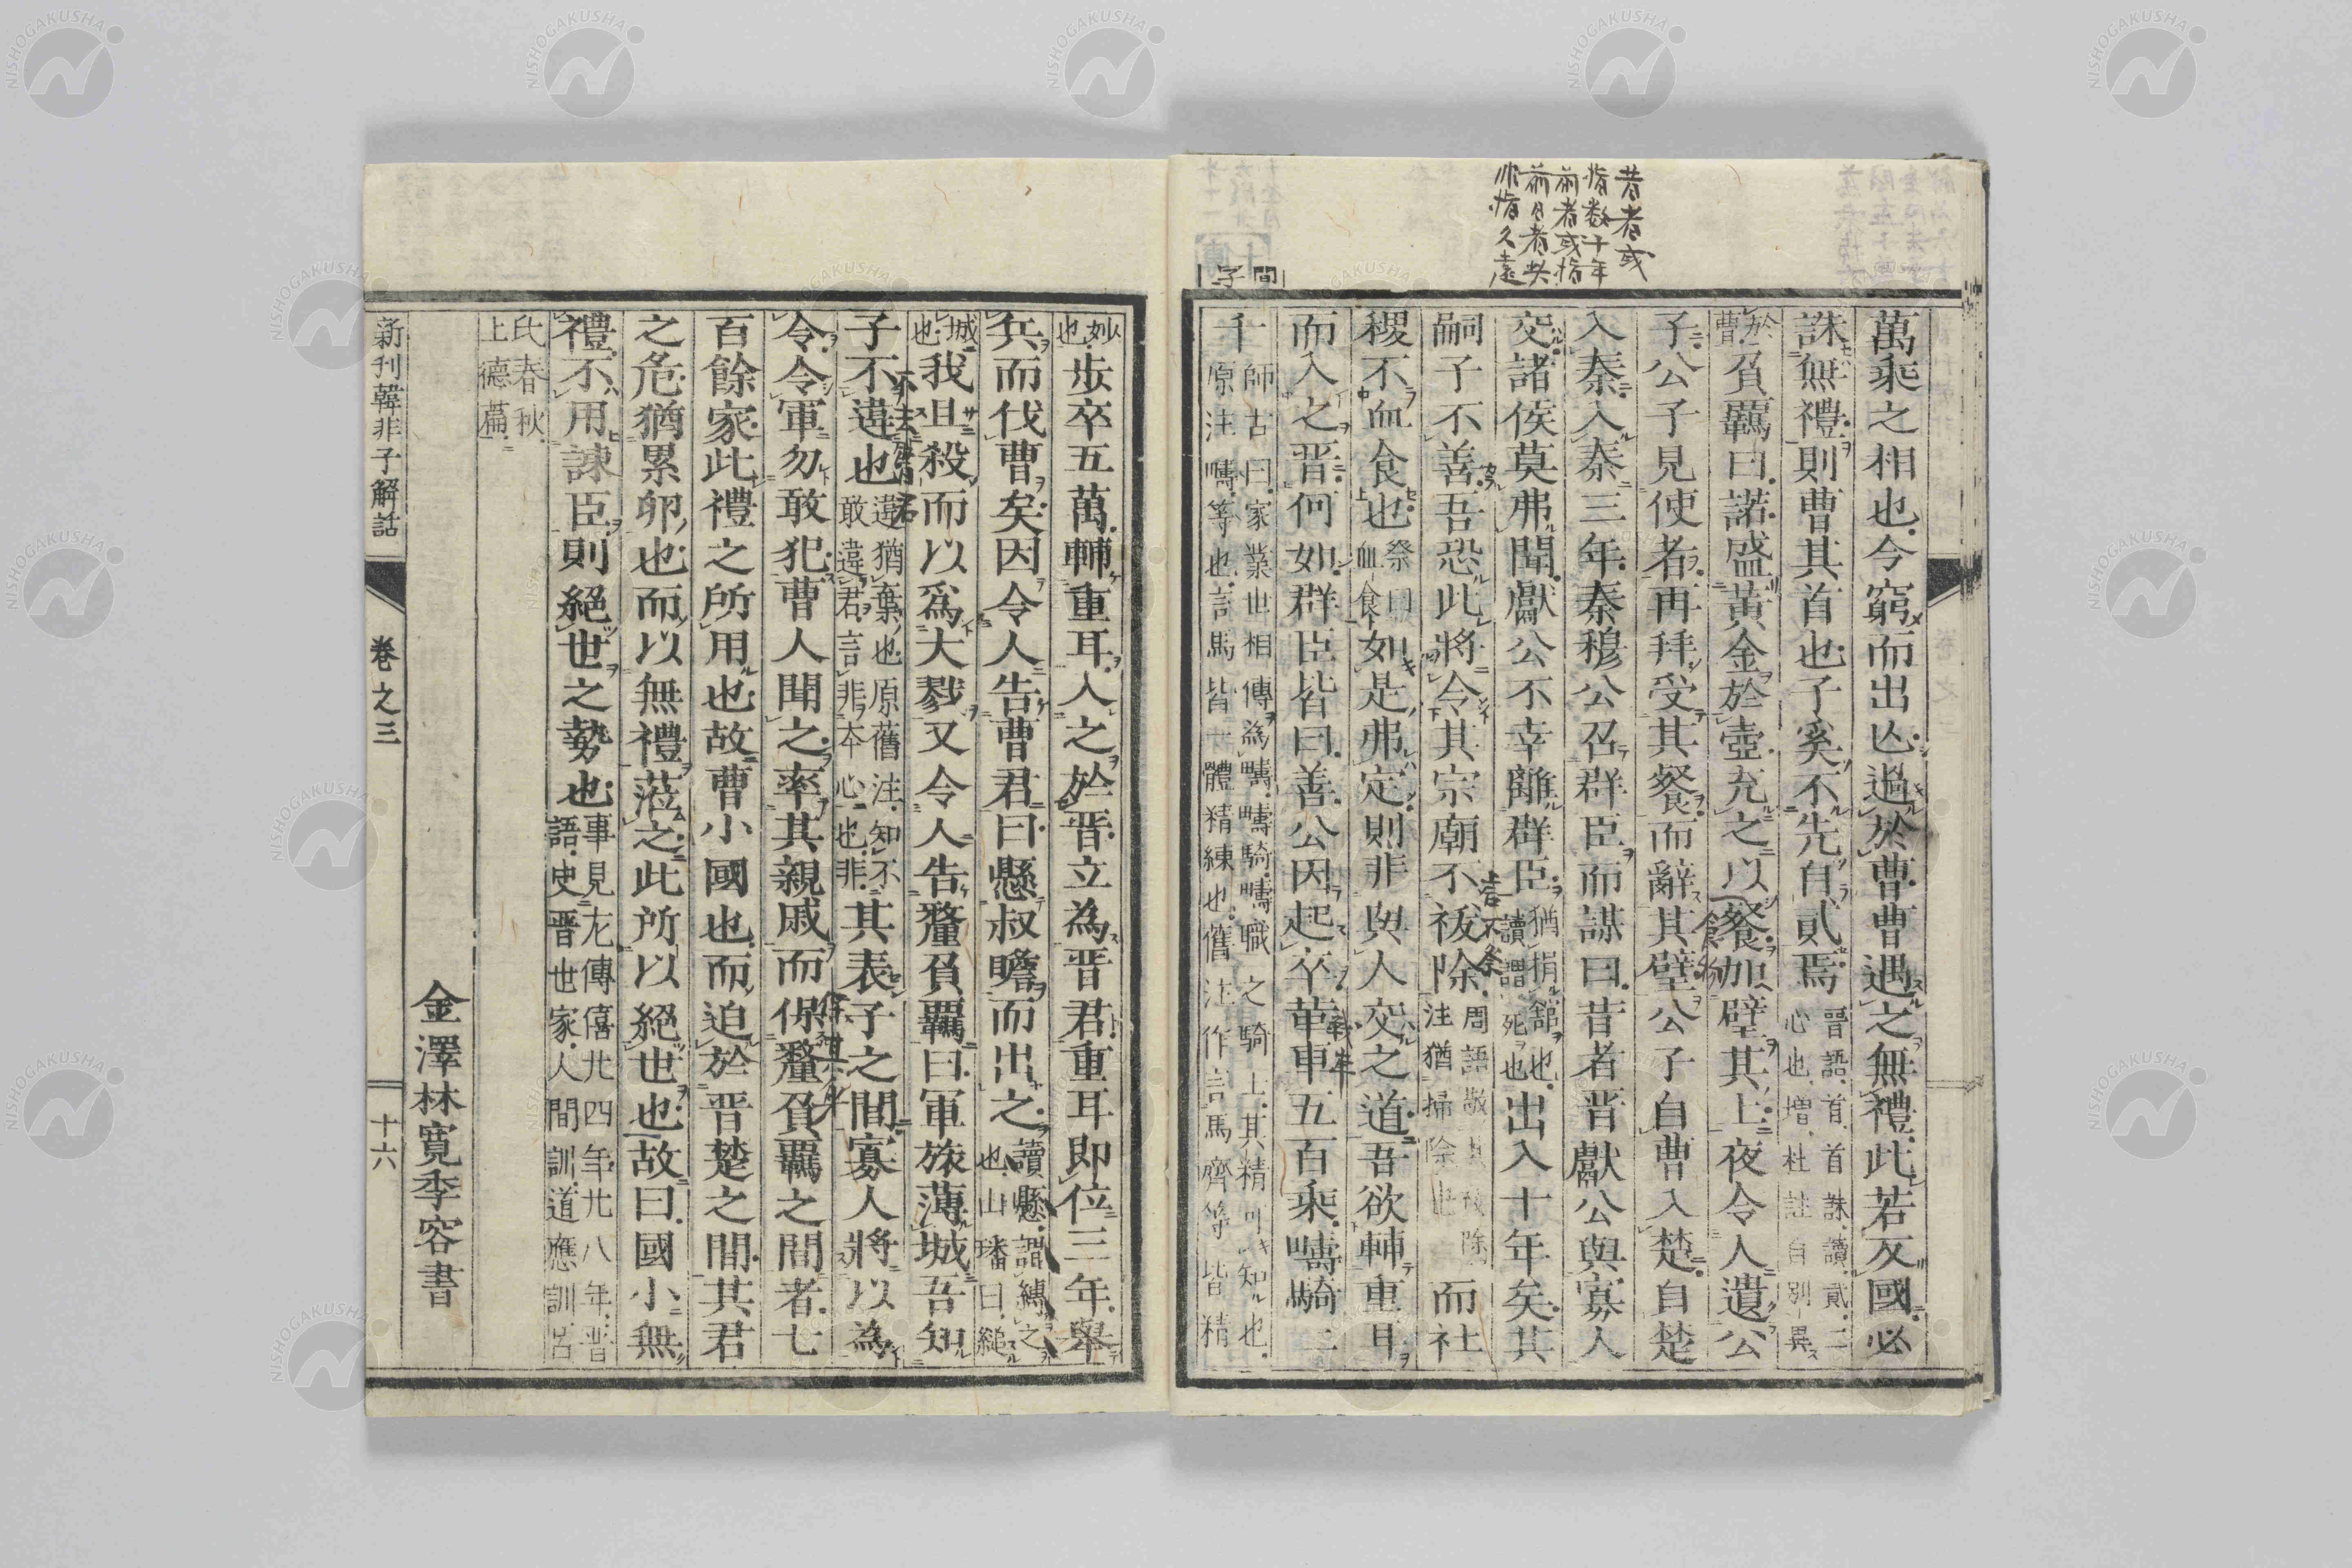 昔者或
指数十年
前者或指
前日者共
非指久遠
萬乘之相也今窮而出亡過於曹曹遇之無禮此若反國必
誅無禮則曹其首也子奚不先自貳焉晋語首首誅讀貳二心也増杜註自別異
於曹負羈曰諾盛黃金於壺充之以餐加壁其上夜令人遺公
食物
子公子見使者再拜受其餐而辭其壁公子自曹入楚自楚
入秦入秦三年秦穆公召群臣而謀曰昔者晋獻公與寡人
交諸侯莫弗聞獻公不幸離群臣猶捐舘也讀謂死也出入十年矣其
嗣子不善吾恐此將令其宗廟不祓除周語敬其祓除注猶掃除也而社
言不祭
稷不血食也祭曰血食如是弗定則非與人交之道吾欲輔重耳
而入之晋何如群臣皆曰善公因起卒革車五百乘疇騎二
戰車
千師古曰家業世相傳爲疇疇騎疇職之騎上其精可知也原注疇等也言馬皆一體精練也舊注作言馬齊等皆精
妙也步卒五萬輔重耳入之於晋立為晋君重耳即位三年舉
兵而伐曹矣因令人告曹君曰懸叔瞻而出之讀懸謂縛之也山璠曰縋
城也我且殺而以爲大戮又令人告釐負羈曰軍旅薄城吾知
子不違也違猶棄也原舊注知不敢違君言非本心也非其表子之間寡人將以為
不去曹君
令令軍勿敢犯曹人聞之率其親戚而保釐負羈之間者七
百餘家此禮之所用也故曹小國也而迫於晋楚之間其君
之危猶累卵也而以無禮涖之此所以絕世也故曰國小無
禮不用諫臣則絕世之勢也事見左傳僖廿四年廿八年晋語史晋世家人間訓道應訓呂
氏春秋上德篇
金澤林寬季容書
新刊韓非子解詁
卷之三
十六